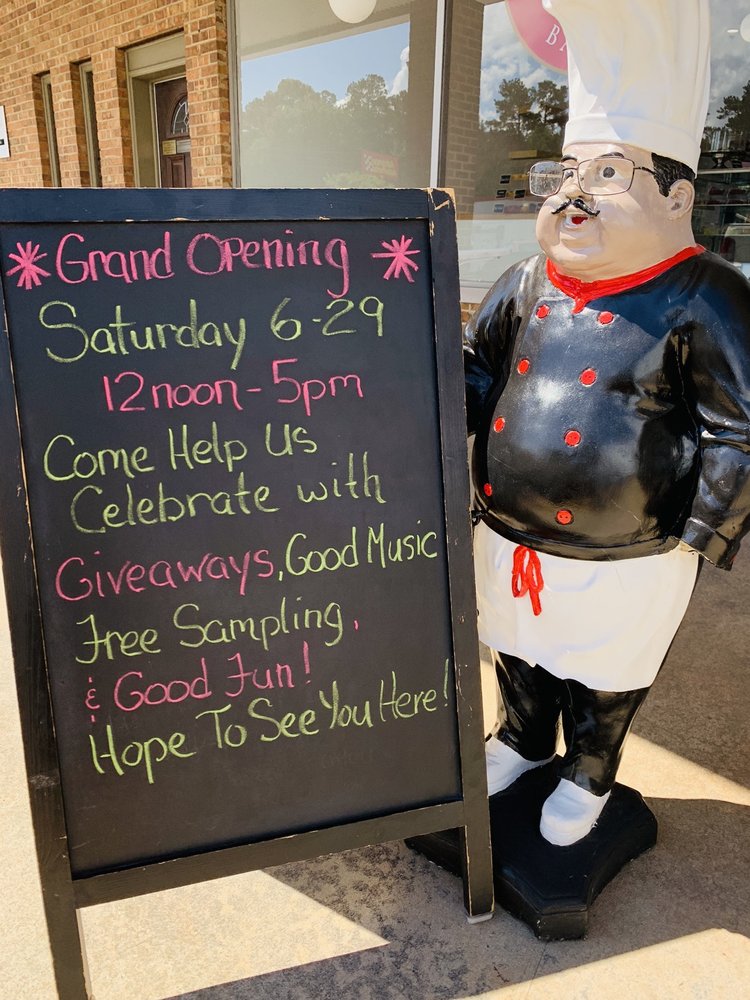 *Grand Opening*
Saturday 6-29
12noon-5pm
Come Help Us
Celebrate with
Giveaways, Good Music
Free Sampling,
& Good Fun!
Hope To See You Here!